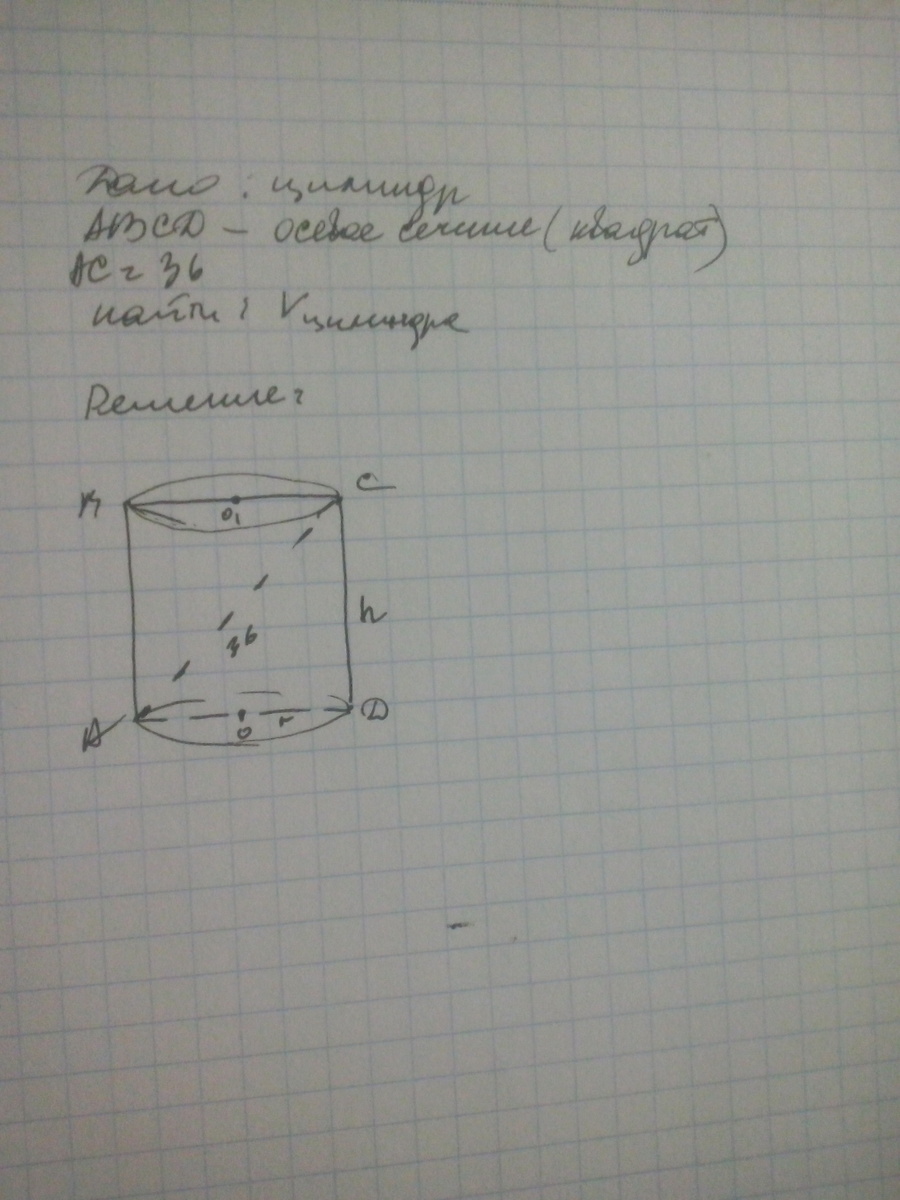 Дано: цилиндр
ABCD - осевое сечение (квадрат)
AC = 36
найти: Vцилиндра
Решение:
B
C
O₁
h
36
A
O
r
D